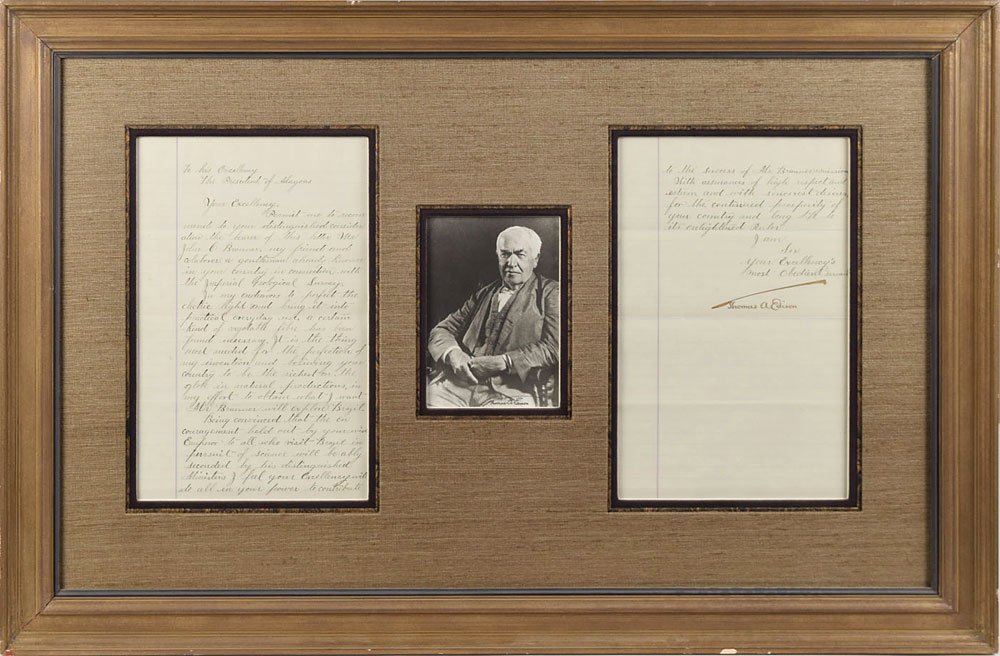 To his Excellency
The President of Alagoas
Your Excellency,
Permit me to recom
mend to your distinguished consider
ation the bearer of this letter Mr
John C. Branner, my friend and
a gentleman already known
in your country in connection with
the Imperial Geological Survey.
In my endeavor to perfect the
electric light and bring it into
practical everyday use, a certain
kind of vegetable fibre has been
found necessary. It is the thing
most needed for the perfection of
my invention and believing your
country to be the richest on the
globe in natural productions, in
my effort to obtain what I want
Mr Branner will explore Brazil.
Being convinced that the en
couragement held out by your wise
Emperor to all who visit Brazil in
pursuit of science will be ably
seconded by his distinguished
Ministers I feel your Excellency will
do all in your power to contribute
Thomas A Edison
to the success of Mr Branner's
With assurances of high respect and
esteem and with sincerest desire
for the continued prosperity of
your country and long life to
its enlightened Ruler.
I am
Sir
Your Excellency's
most Obedient servant
Thomas A. Edison